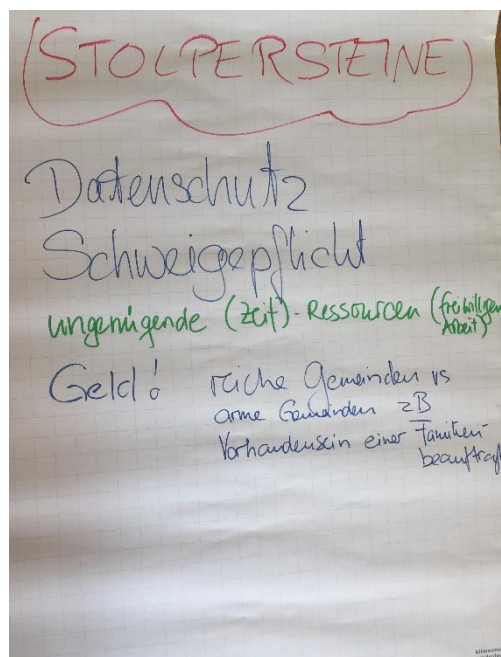 (STOLPERSTEINE)
Datenschutz
Schweigepflicht
ungenügende (Zeit)-Ressourcen (freiwilligen
Arbeit)
Geld! reiche Gemeinden vs
arme Gemeinden zB
Vorhandensein einer Familien-
beauftragt